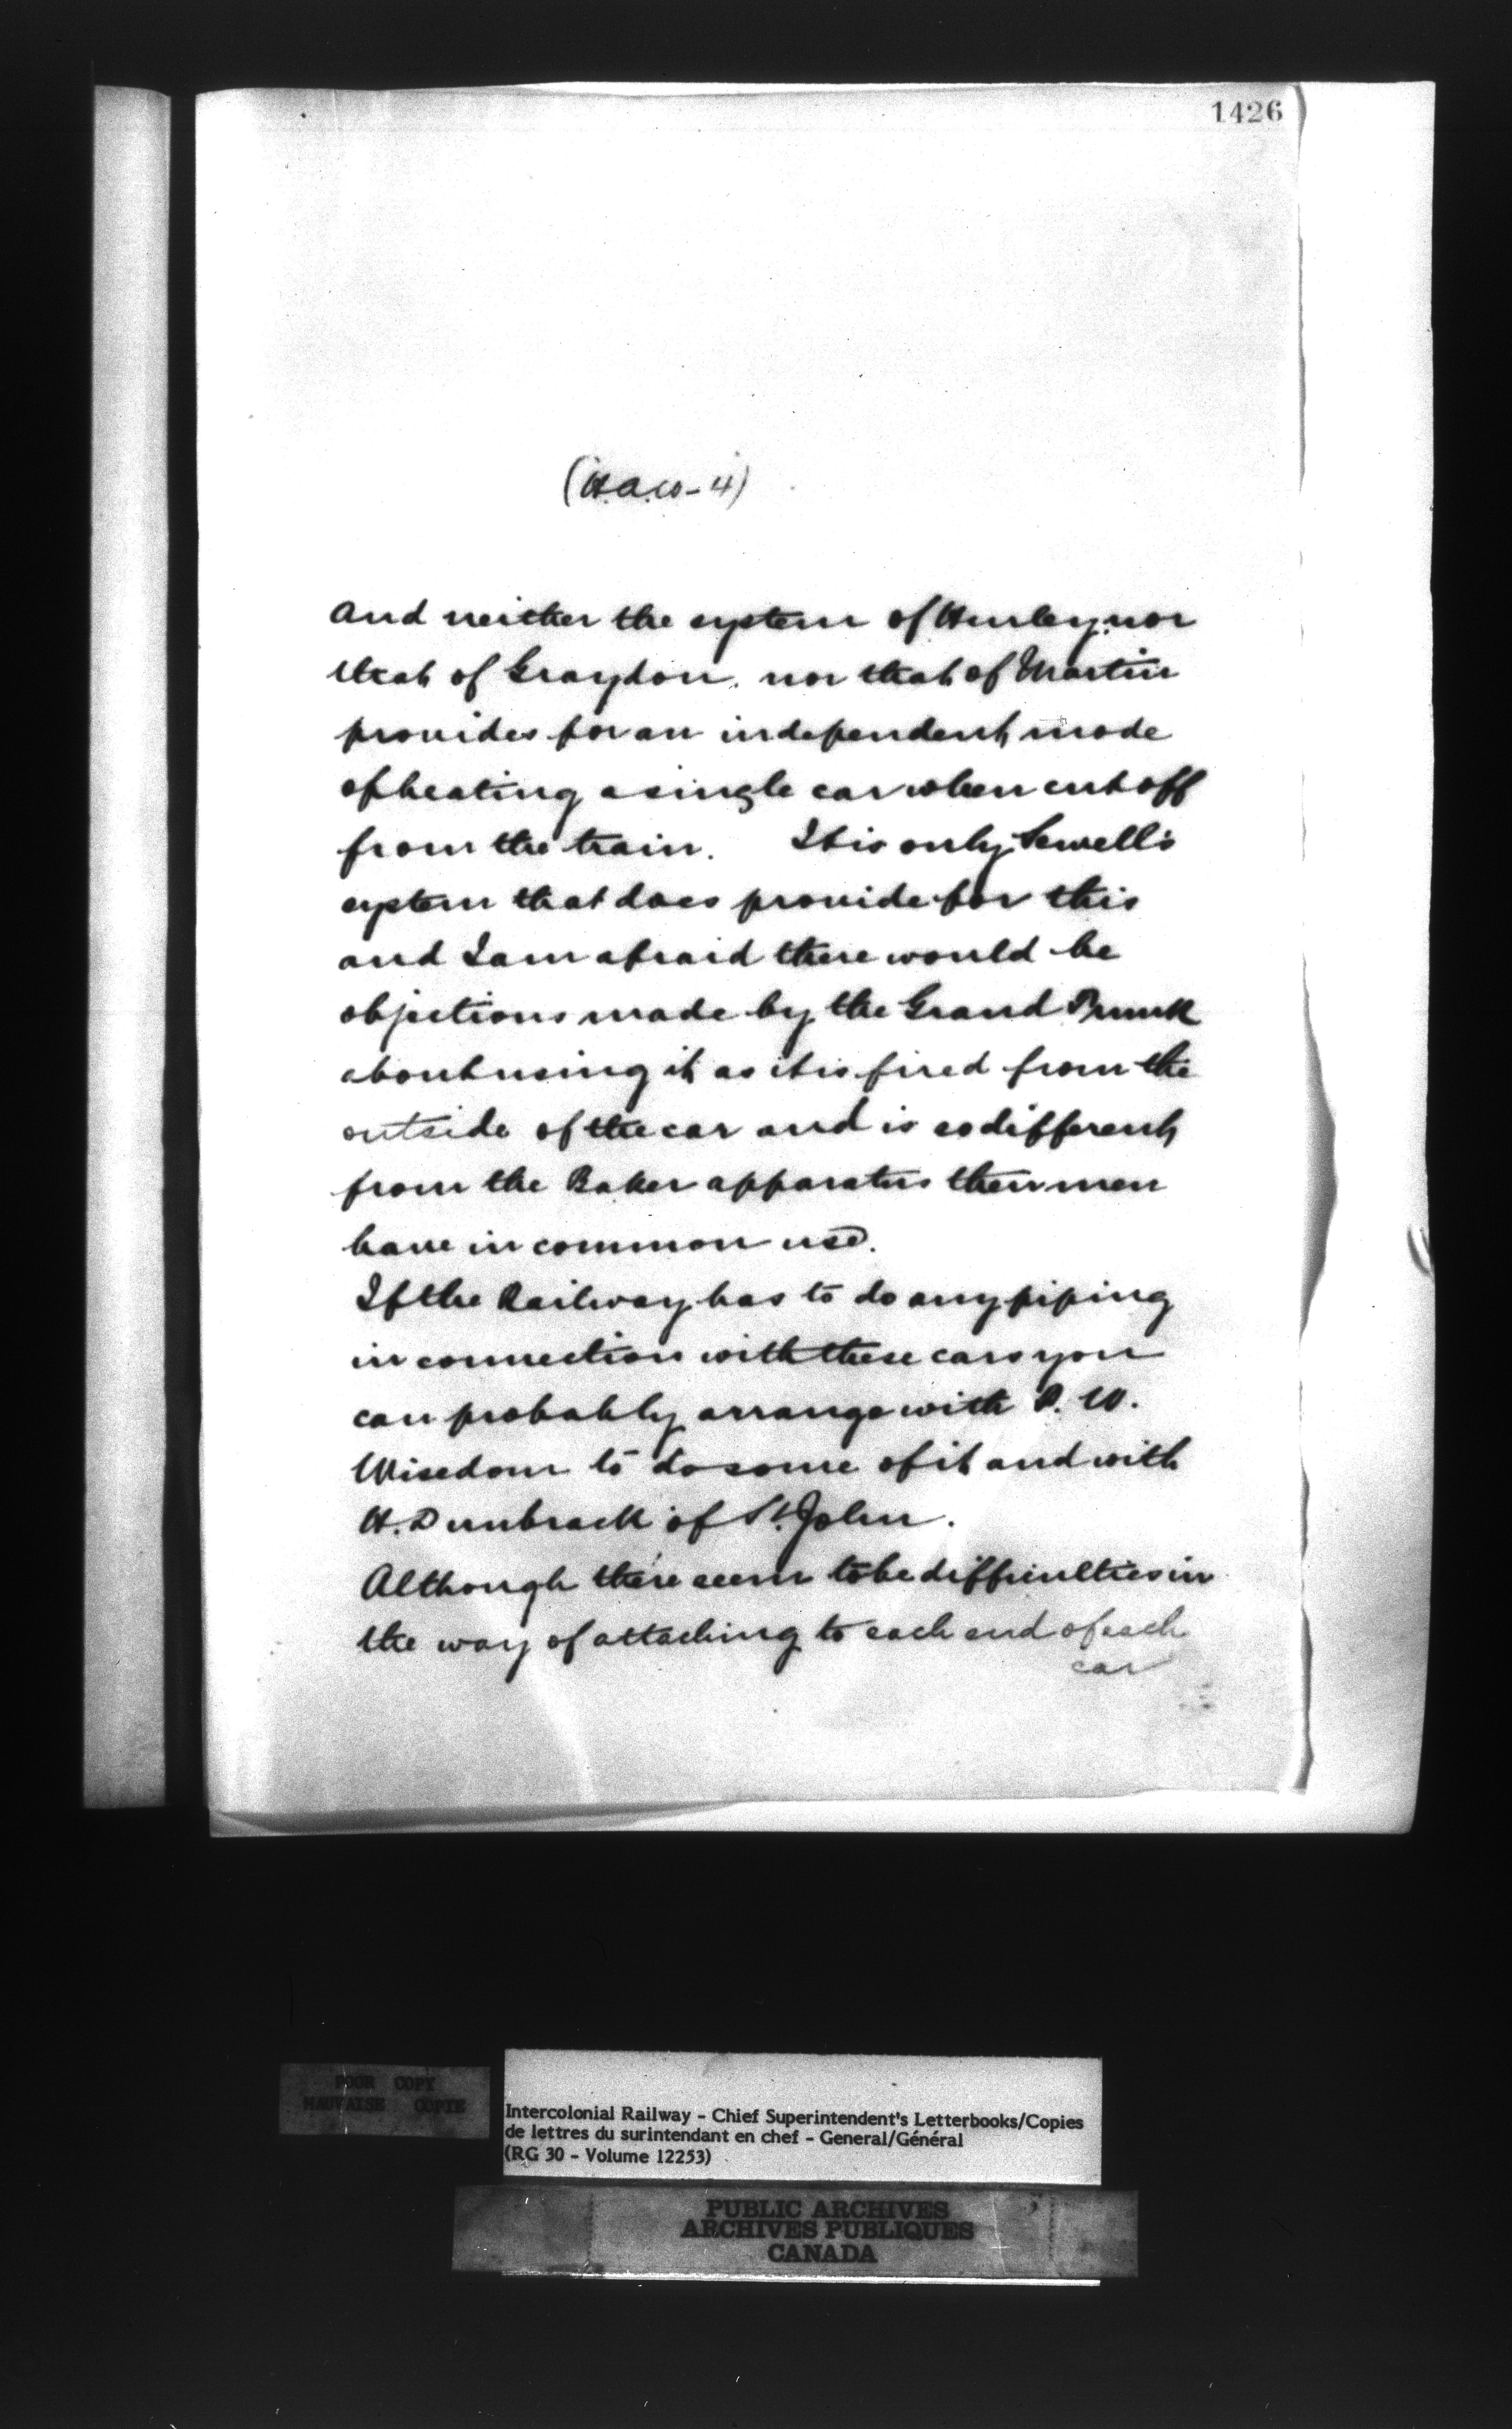 1426
(H.A.W-4)
and neither the system of Hurley nor
that of Graydon. nor that of Martin
provides for an independent mode
of heating a single car when cut off
from the train. It is only Sewell's
system that does provide for this
and I am afraid there would be
objections made by the Grand Trunk
about using it as it is fired from the
outside of the car and is so different
from the Baker apparatus their men
have in common use.
If the Railway has to do any piping
in connection with these cars you
can probably arrange with P. W.
Wisedom to do some of it and with
H. Dunbrack of St. John.
Although there seem to be difficulties in
the way of attaching to each end of each
car
POOR COPY
MAUVAISE COPIE
Intercolonial Railway - Chief Superintendent's Letterbooks/Copies
de lettres du surintendant en chef - General/Général
(RG 30 - Volume 12253)
PUBLIC ARCHIVES
ARCHIVES PUBLIQUES
CANADA